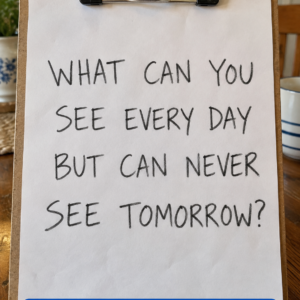 WHAT CAN YOU
SEE EVERY DAY
BUT CAN NEVER
SEE TOMORROW?